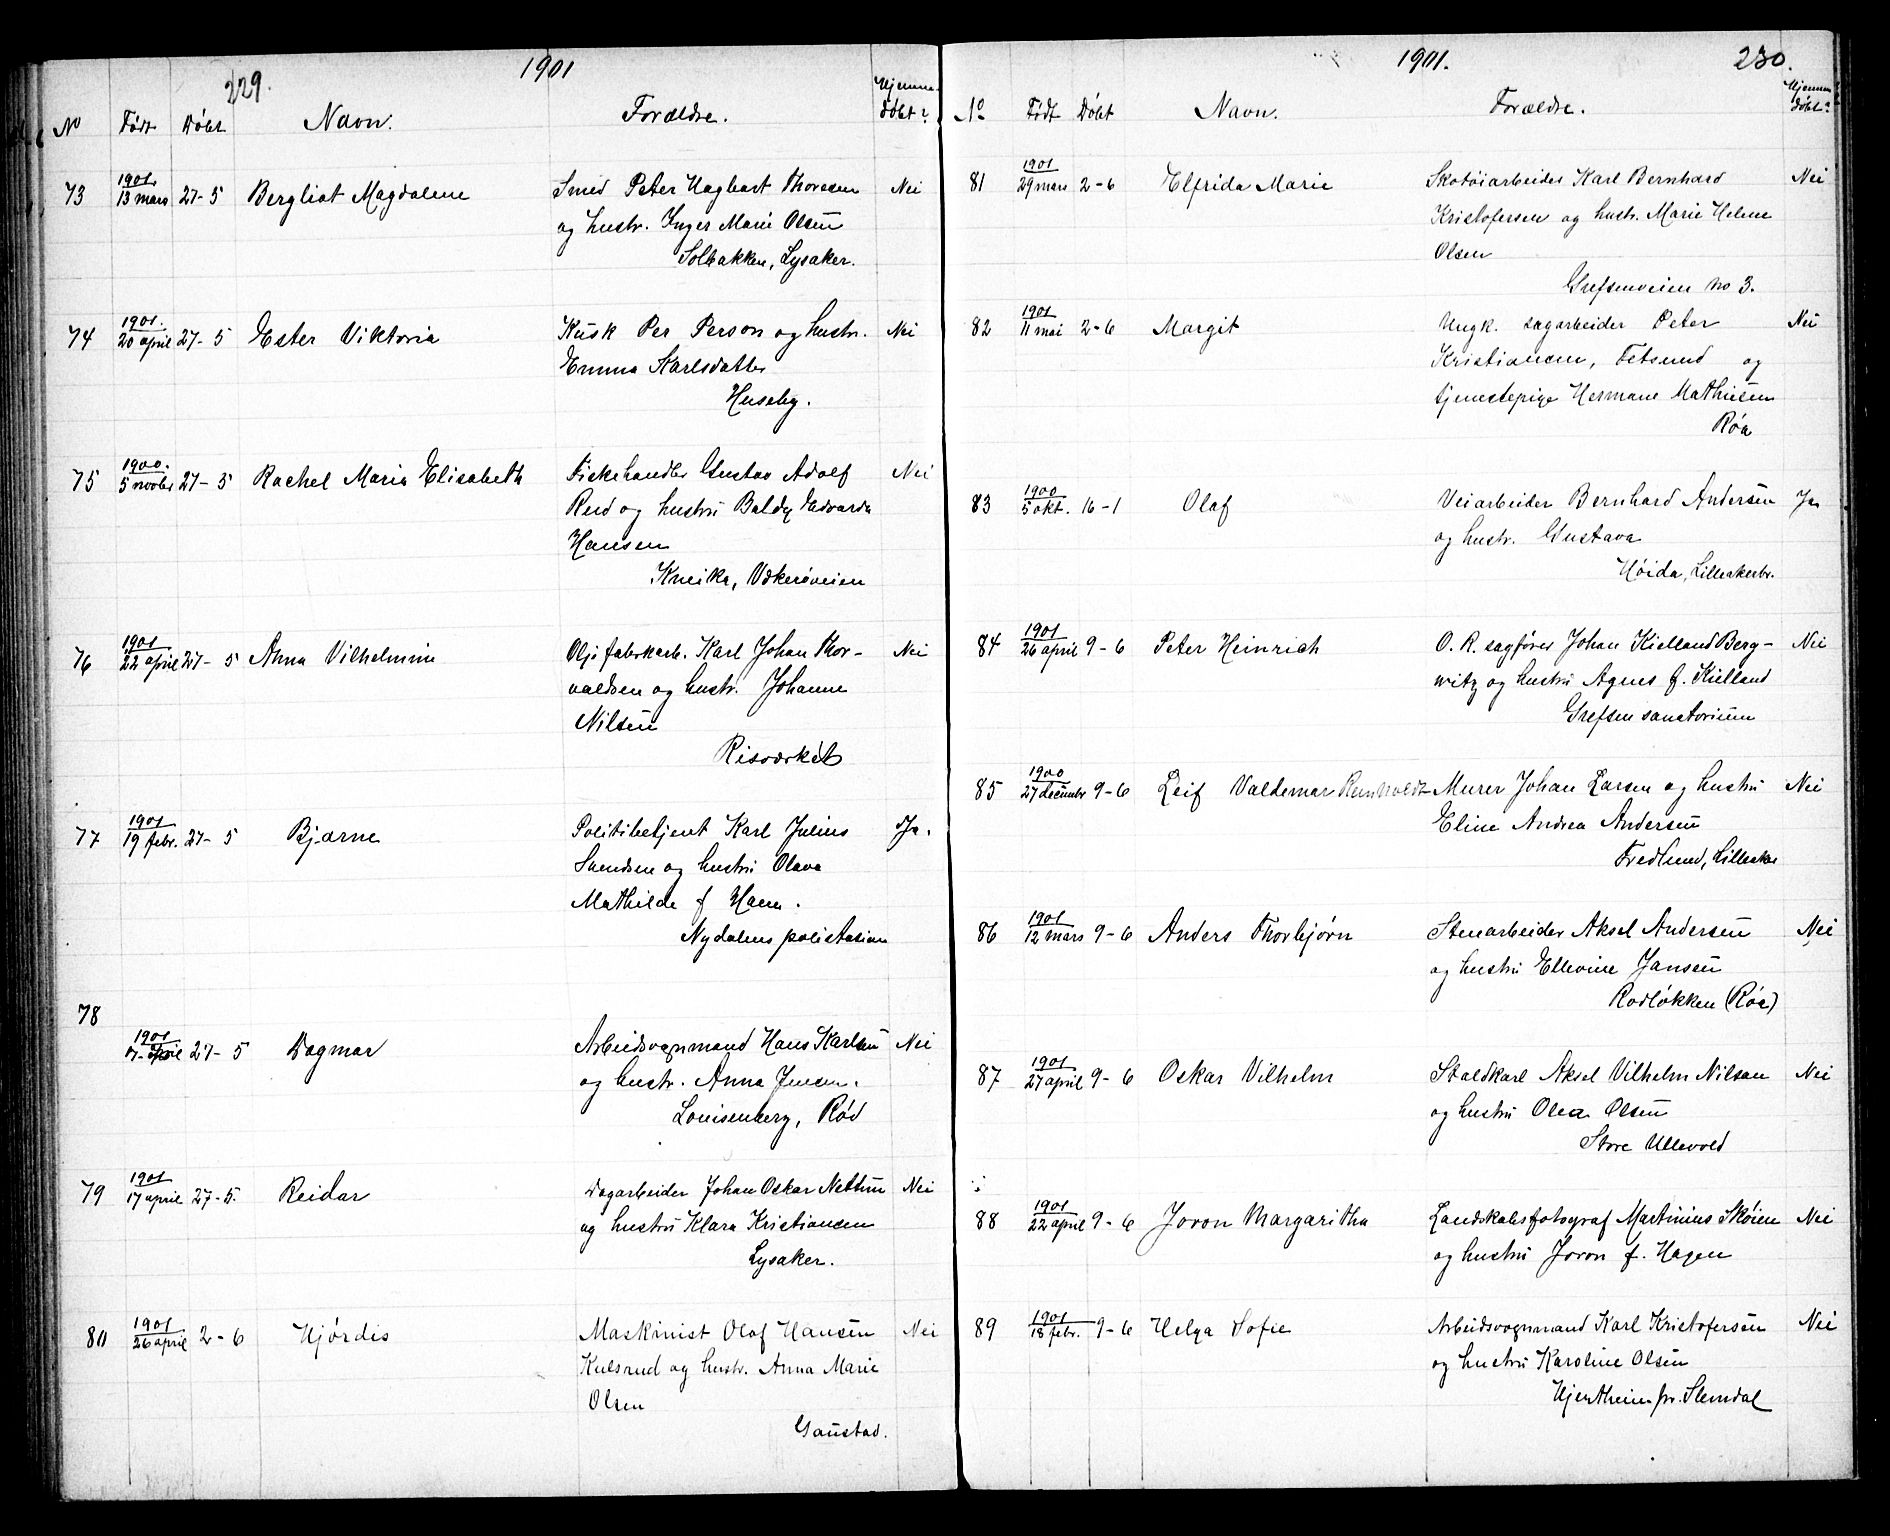 229.
1901
No Født Døbt Navn. Forældre. Hjemme-
døbt?
73 1901 13 mars 27-5 Bergliot Magdalene Smed Peter Hagbart Thoresen Nei
og hustr. Inger Marie Olsen
Solbakken, Lysaker.
74 1901. 20 april 27-5 Ester Viktoria Kusk Per Person og hustr. Nei
Emma Karlsdatter
Huseby.
75 1900. 5 novber 27-5 Rachel Maria Elisabeth Fiskehandler Gustav Adolf Nei
og hustru Edvarda
Hansen
Kneika, Vækerøveien
76 1901 22 april 27-5 Anna Vilhelmine Karl Johan Thor-
Nei
valdsen og hustr. Johanne
Nilsen
Risoverket
77 1901 19 febr. 27-5 Bjarne Politibetjent Karl Julius Ja.
Svendsen og hustru Olava
Mathilde f
Nydalens polistasion
78
1901 april 27-5 Dagmar Arbeidsvognmand Hans Karlsen Nei
og hustr. Anna Jensen.
Louisenberg, Rød
79 1901 17 april 27-5. Reidar Dagarbeider Johan Oskar Nei
og hustru Klara Kristiansen
Lysaker.
80 1901 26 april 2-6 Hjørdis Maskinist Olaf Hansen Nei
Kulsrud og hustr. Anna Marie
Olsen
Gaustad.
1901. 230.
No Født Døbt Navn. Forældre. Hjemme
døbt?
81 1901 29 mars 2-6 Elfrida Marie Skotøiarbeider Karl Bernhard Nei
Kristofersen og hustr. Marie Helene
Olsen
Grefsenveien no 3.
82 1901 11 mai 2-6 Margit Ungk. sagarbeider Peter Nei
Kristiansen, Fetsund og
tjenestepige Hermane Mathiesen
Røa
83 1900 5 okt. 16-1 Olaf Veiarbeider Bernhard Andersen Ja
og hustr. Gustava
Høida, Lilleakerbr.
84 1901 26 april 9-6 Peter Heinrich O. R. sagfører Johan Kielland Berg- Nei
witz og hustru Agnes f. Kielland
Grefsen sanatorium
85 1900 27 decembr 9-6 Leif Valdemar Reinholdt Murer Johan Larsen og hustru Nei
Eline Andrea Andersen
Fredlund, Lilleaker
86 1901 12 mars 9-6 Anders Thorbjørn Stenarbeider Aksel Andersen Nei
og hustru Ellevine Jansen
Rodløkken (Røa)
87 1901 27 april 9-6 Oskar Vilhelm Staldkarl Aksel Vilhelm Nilsen Nei
og hustru Olea Olsen
Store Ullevold
88 1901 22 april 9-6 Joron Margaritha Landskabsfotograf Martinius Skøien Nei
og hustru Joron f. Hagen
89 1901 18 febr. 9-6 Helga Sofie Arbeidsvognmand Karl Kristofersen Nei
og hustru Karoline Olsen
Hjemtheim pr. Slemdal